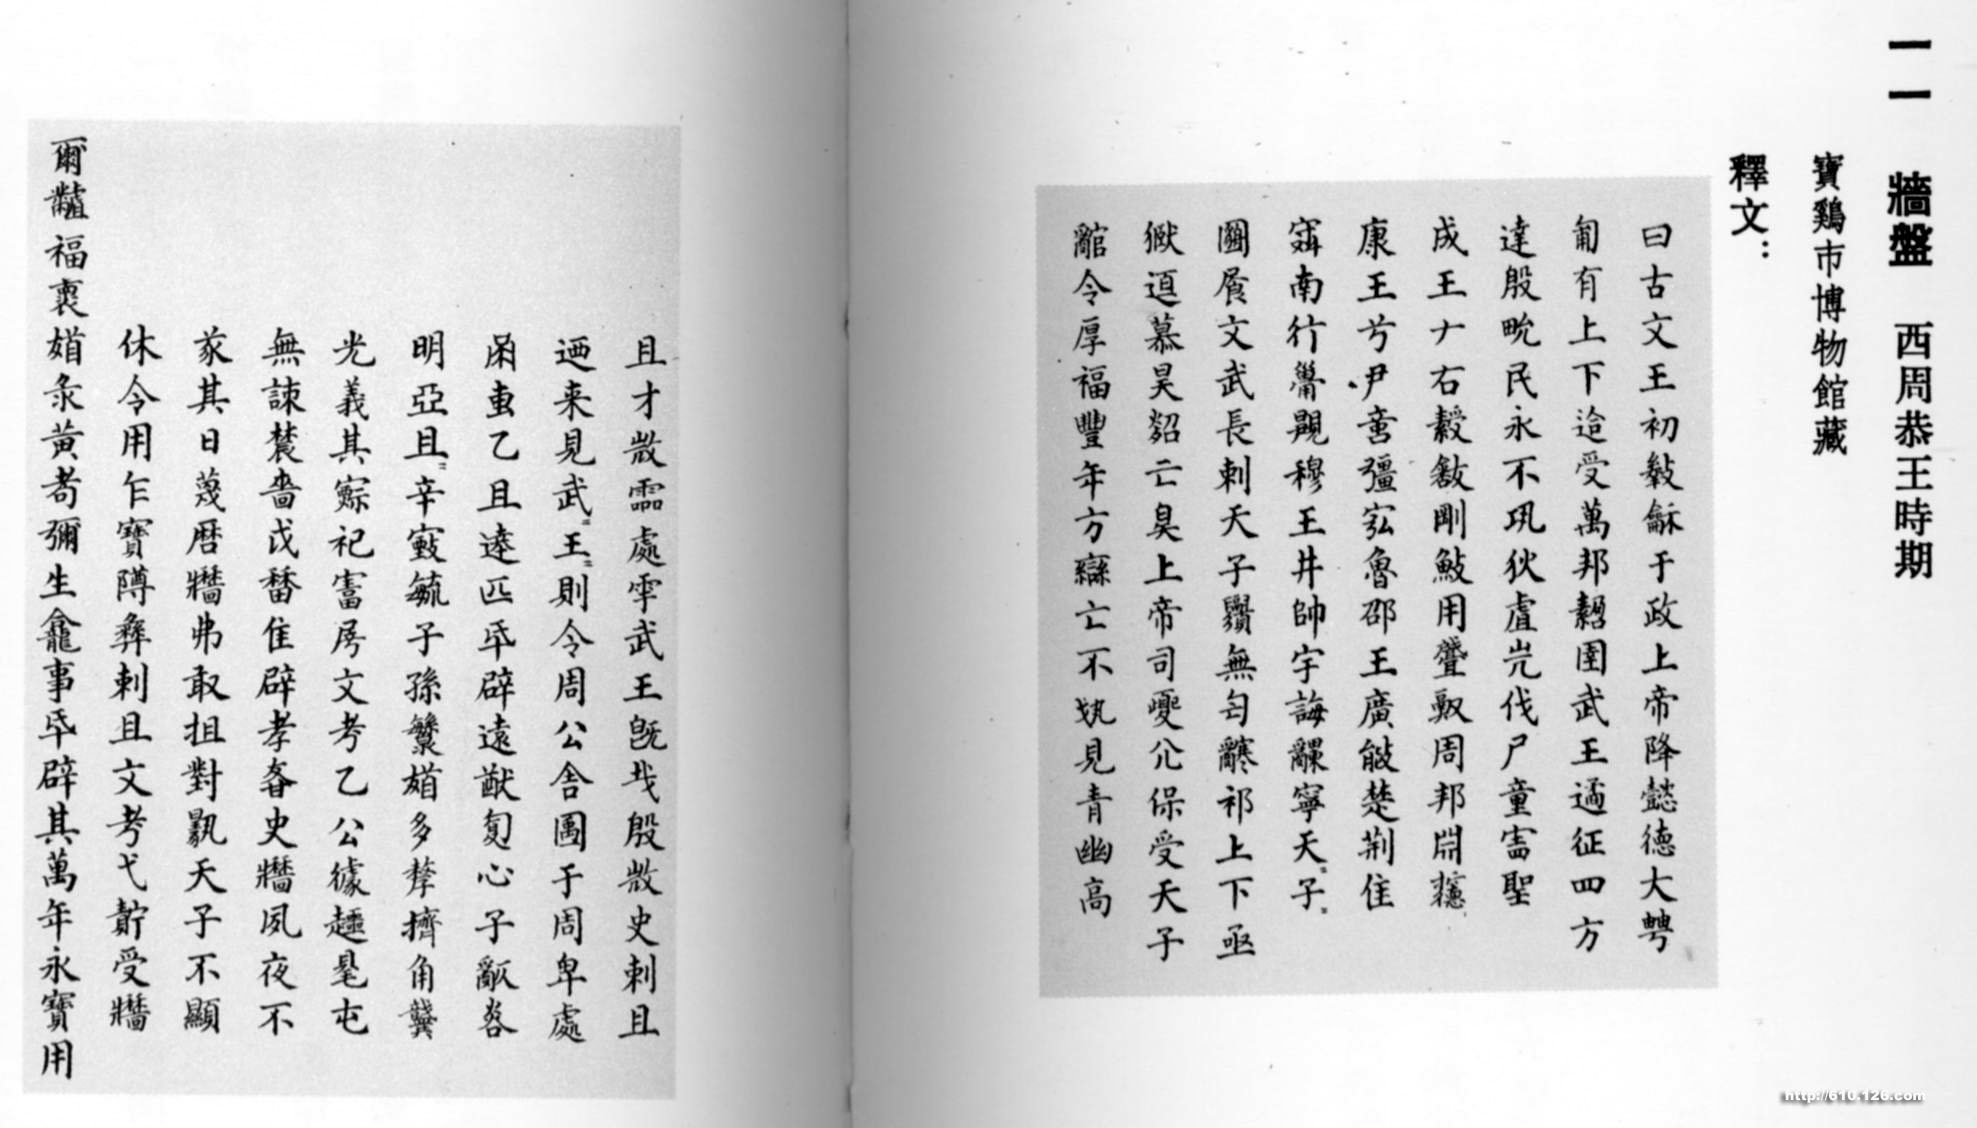 一一 牆盤 西周恭王時期
寶鷄市博物館藏
釋文：
曰古文王初𢿐龢于政上帝降懿德大甹
匍有上下迨受萬邦𩛥圉武王遹征四方
達殷畯民永不巩狄虘髟伐尸童憲聖
成王ナ右㝅𣪘剛鮌用肈𢽍周邦淵
康王兮尹𠶷彊宖魯邵王廣能楚荆隹
南行穆王井帥宇誨寧天=子=
文武長剌天子無匄祁上下亟
𤞷𨒌慕昊亡臭上帝司夒尣保受天子
綰令厚福豐年方䜌亡不見青幽高
且才𢼸霝處雩武王旣𢦏殷𢼸史剌且
迺来見武=王=則令周公舍圖于周卑處
甬叀乙且逹匹氒辟遠猷匐心子𠩵
明亞且=辛毓子孫䋣多孷㩶角龔
光義其禋祀害屖文考乙公遽趩㝵屯
無諫農嗇戉𤳈隹辟孝𦰩史牆夙夜不
㒸其日蔑曆牆弗敢抯對𩰬天子不顯
休令用乍寶䵼彝剌且文考弋䝬受牆
爾𪓐福裏彔黃耇彌生龕事氒辟其萬年永寶用
http://610.126.com